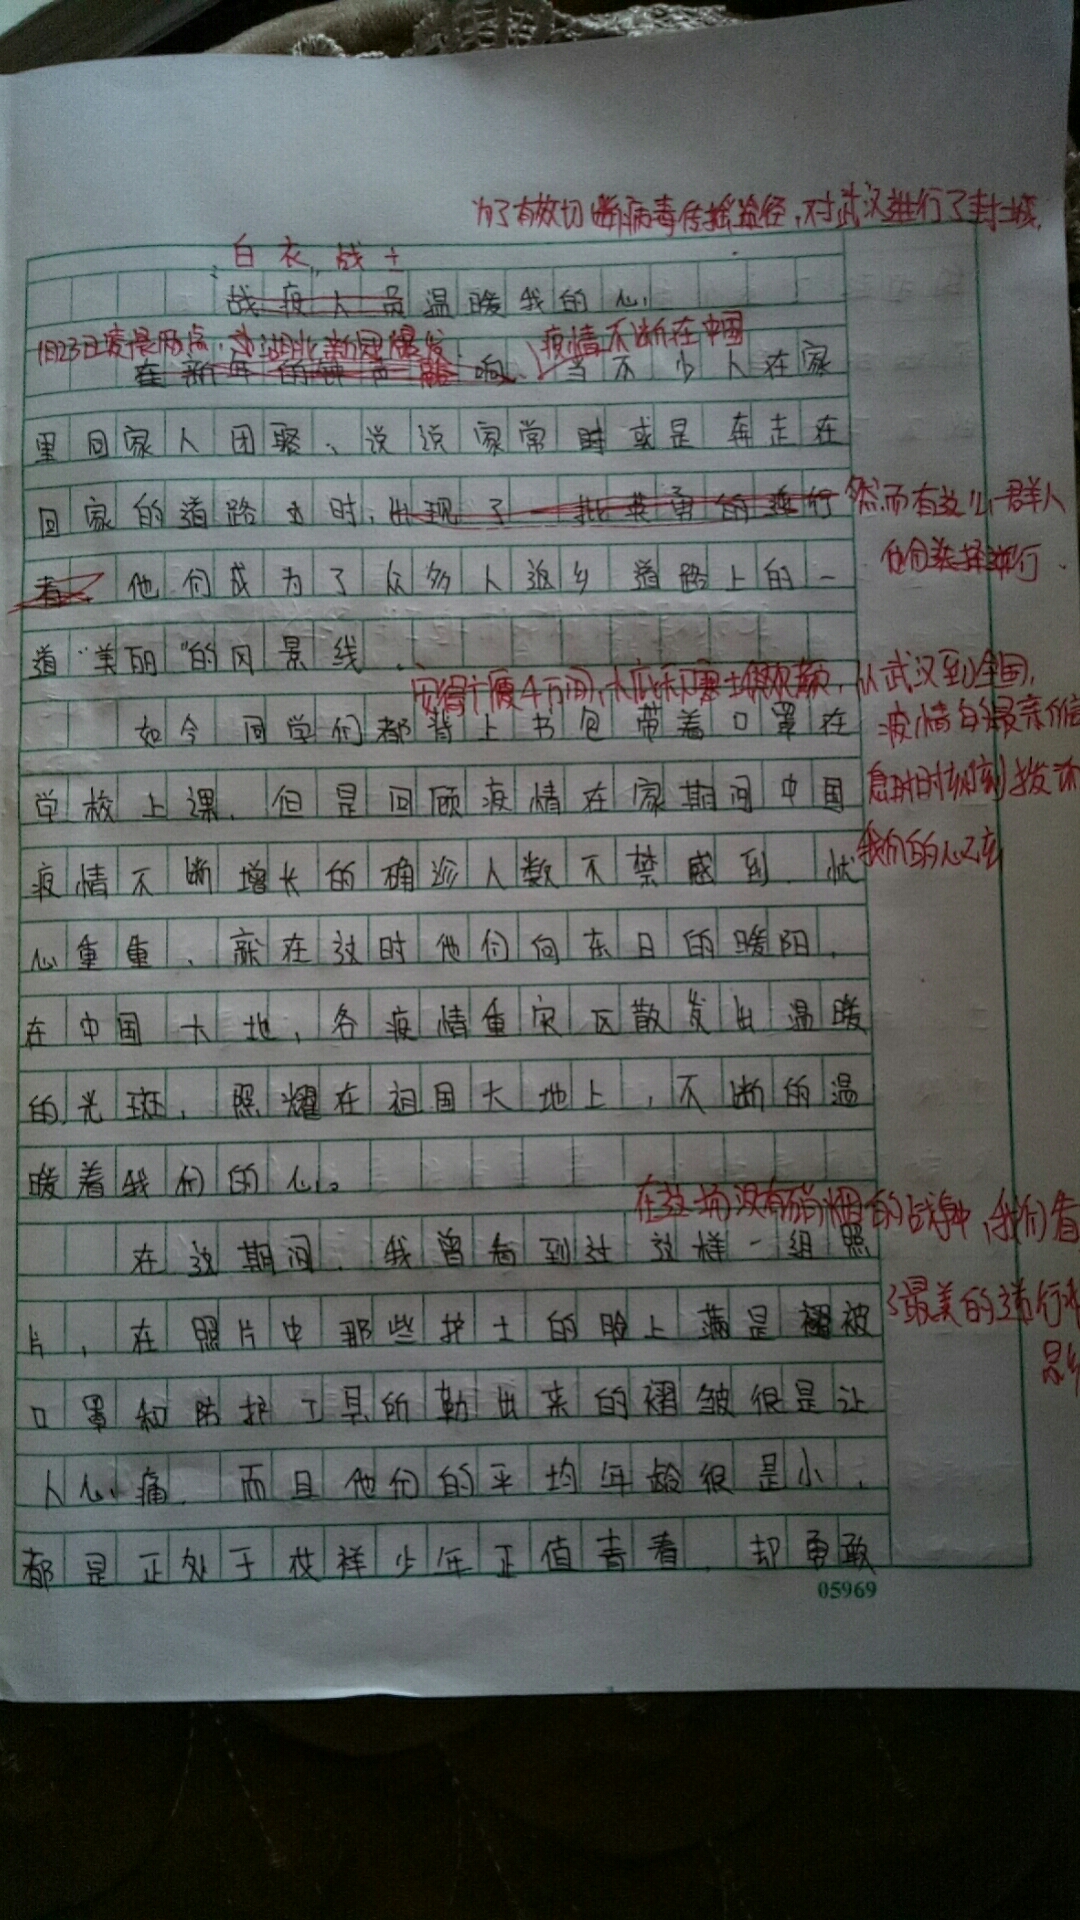 为了有效切断病毒传播途径,对武汉进行了封城,
白衣战士
战疫人员温暖我的心
1月23日凌晨两点,
疫情不断在中国
在新年的钟声 响、当不少人在家
里同家人团聚、说说家常时或是奔走在
回家的道路上时,出现了一批英勇的逆行
然而有这么一群人
者 他们成为了众多人返乡道路上的一
他们选择逆行.
道“美丽”的风景线.
安得广厦千万间,大庇天下寒士俱欢颜,从武汉到全国,
如今同学们都背上书包带着口罩在
疫情的最新信
学校上课.但是回顾疫情在家期间中国
息时时刻刻拨动
疫情不断增长的确诊人数不禁感到忧
我们的心弦
心重重、就在这时他们向东日的暖阳,
在中国大地,各疫情重灾区散发出温暖
的光斑,照耀在祖国大地上,不断的温
暖着我们的心。
在这场没有硝烟的战争中,我们看
在这期间,我曾看到过这样一组照
了最美的逆行
片,在照片中那些护士的脸上满是 被
口罩和防护工具所勒出来的褶皱很是让
人心痛.而且他们的平均年龄很是小,
都是正处于花样少年正值青春,却勇敢
05969